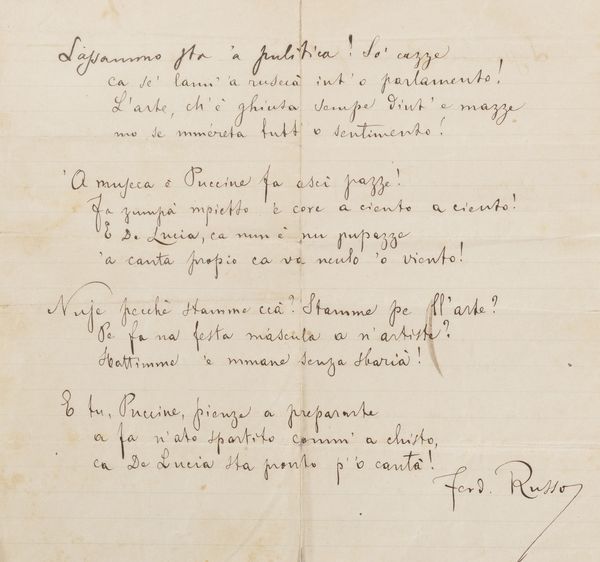 Lassammo sta 'a pulitica! So' cazze
ca se' lam' 'a ruscià int' 'o parlamento!
L'arte, ch'è ghiusa sempe dint' e mazze
mo se mméreta tutt' o sentimento!
'A museca 'e Puccine fa ascì pazze!
Fa zumpà mpietto 'e core a ciento a ciento!
E De Lucia, ca nun è nu pupazze
'a canta propio ca va nculo 'o viento!
Nuje pecchè stamme ccà? Stamme pe ll'arte?
Pe fa na festa mascula a n'artiste?
Sbattimme 'e mmane senza sbarià!
E tu, Puccine, pienze a prepararte
a fa n'ato spartito comm' a chisto,
ca De Lucia sta pronto p' 'o cantà!
Ferd. Russo